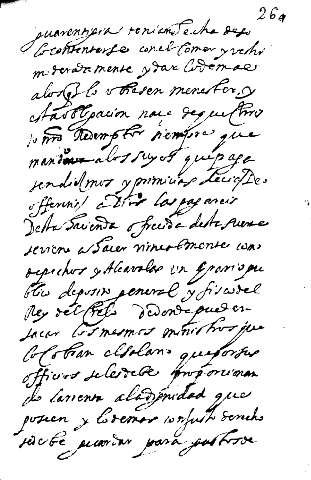 264
guarentigia teniendo echa de so
lo contentarse con el comer y vestir
moderadamente y dar lo demas
a los q lo obiesen menester, y
esta obligacion nace de que Christo
nro Redemptor siempre que
manda a los suyos que paga
sen diesmos y primicias
offerenis a Dios las pagareis
Desta hacienda ofrecida desta suerte
se viene a hacer vinerablmente con
derechos y Alcavalas un Erario pu
blico deposito general y fisco del
Rey del cielo de donde pueden
sacar los mesmos ministros que
lo cobran el salario que por sus
officios se les debe proporcionan
do la renta a la dignidad que
poseen y lo demas con justo derecho
se debe guardar para pobres